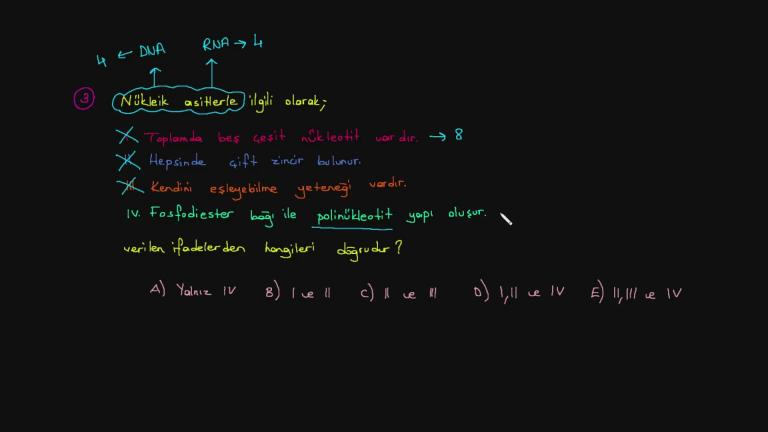 4 ← DNA RNA → 4
3 Nükleik asitlerle ilgili olarak;
I. Toplamda beş çeşit nükleotit vardır. → 8
II. Hepsinde çift zincir bulunur.
III. Kendini eşleyebilme yeteneği vardır.
IV. Fosfodiester bağı ile polinükleotit yapı oluşur.
verilen ifadelerden hangileri doğrudur?
A) Yalnız IV B) I ve II C) II ve III D) I, II ve IV E) II, III ve IV